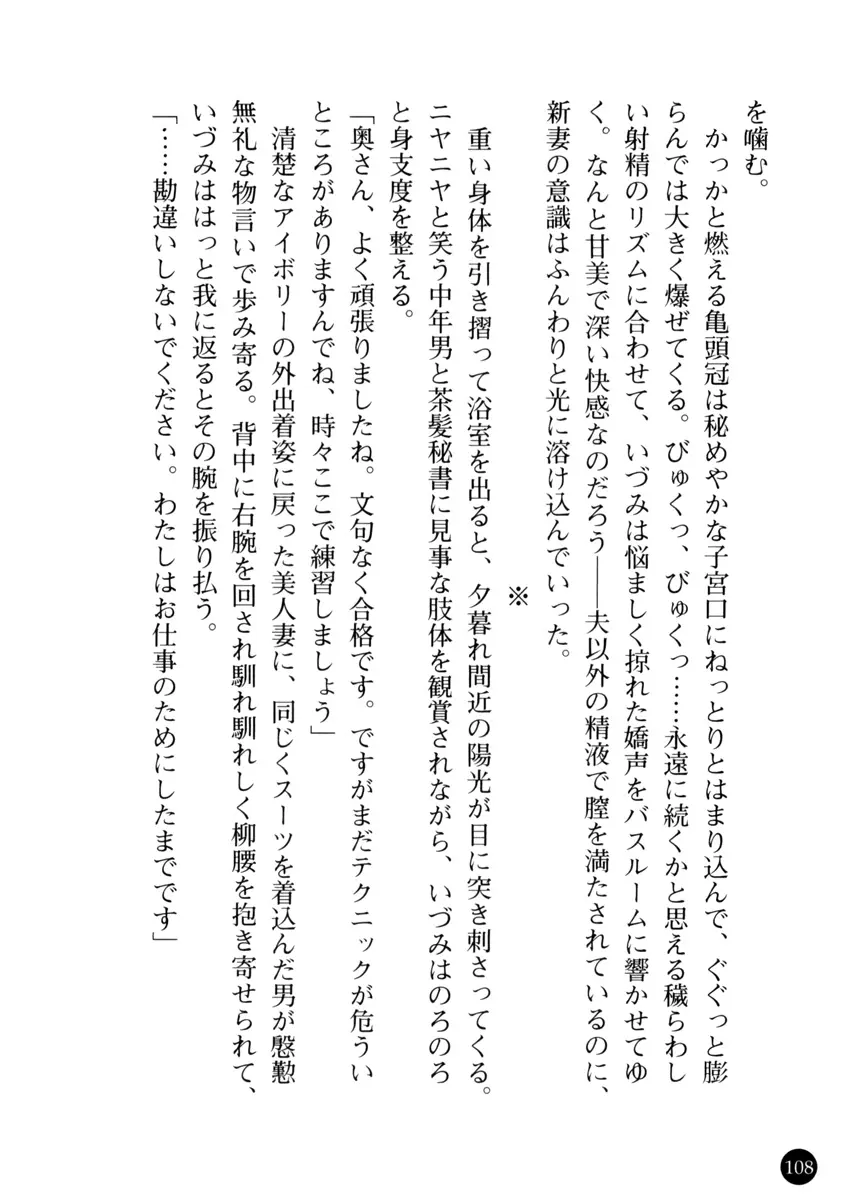 を噛む。
　かっかと燃える亀頭冠は秘めやかな子宮口にねっとりとはまり込んで、ぐぐっと膨
らんでは大きく爆ぜてくる。びゅくっ、びゅくっ……永遠に続くかと思える穢らわし
い射精のリズムに合わせて、いづみは悩ましく掠れた嬌声をバスルームに響かせてゆ
く。なんと甘美で深い快感なのだろう――夫以外の精液で膣を満たされているのに、
新妻の意識はふんわりと光に溶け込んでいった。
※
　重い身体を引き摺って浴室を出ると、夕暮れ間近の陽光が目に突き刺さってくる。
ニヤニヤと笑う中年男と茶髪秘書に見事な肢体を観賞されながら、いづみはのろのろ
と身支度を整える。
「奥さん、よく頑張りましたね。文句なく合格です。ですがまだテクニックが危うい
ところがありますんでね、時々ここで練習しましょう」
　清楚なアイボリーの外出着姿に戻った美人妻に、同じくスーツを着込んだ男が慇懃
無礼な物言いで歩み寄る。背中に右腕を回され馴れ馴れしく柳腰を抱き寄せられて、
いづみははっと我に返るとその腕を振り払う。
「……勘違いしないでください。わたしはお仕事のためにしたまでです」
108